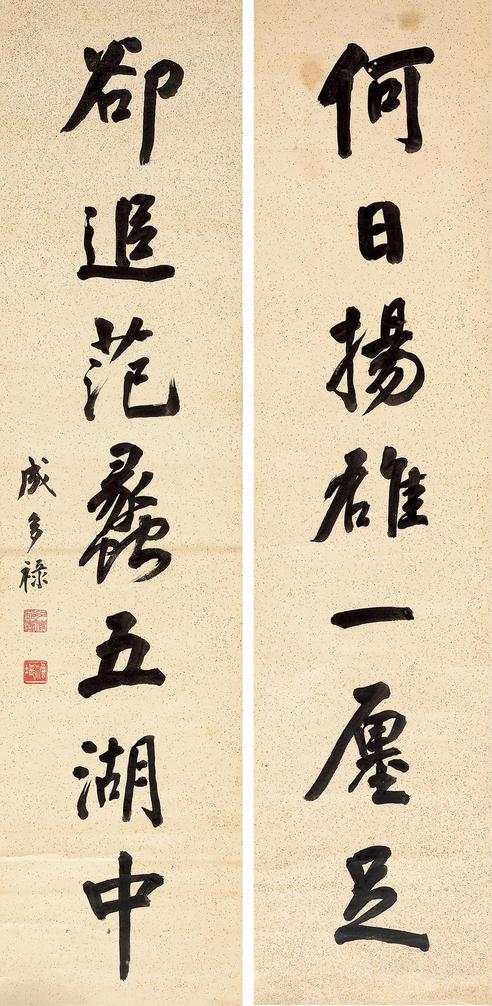 何日揚雄一廛足
卻追范蠡五湖中
成多祿